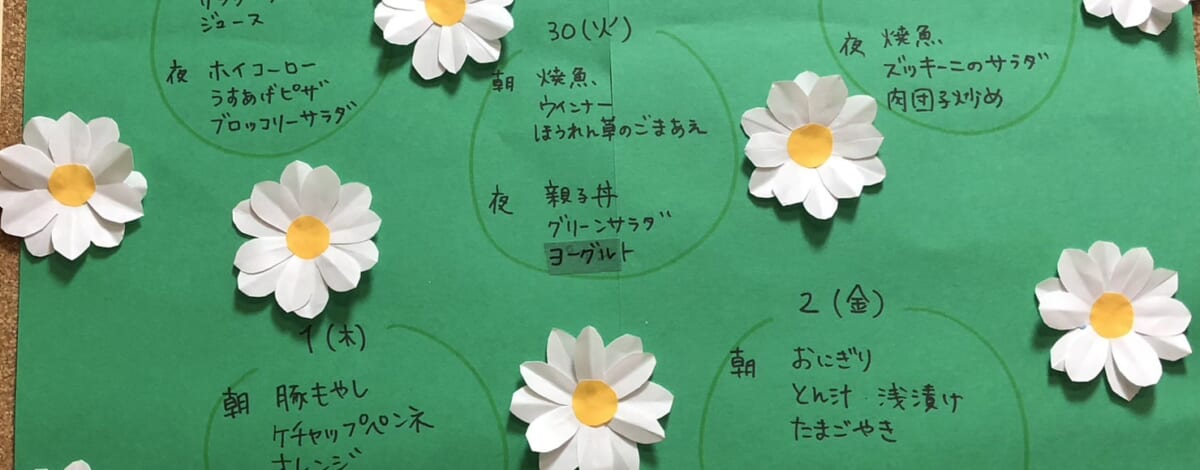 ジュース
夜 ホイコーロー
うすあげピザ
ブロッコリーサラダ
30(火)
朝 焼魚、
ウインナー
ほうれん草のごまあえ
夜 親子丼
グリーンサラダ
ヨーグルト
夜 焼魚、
ズッキーニのサラダ
肉団子炒め
1(木)
朝 豚もやし
ケチャップペンネ
オレンジ
2(金)
朝 おにぎり
とん汁 浅漬け
たまごやき